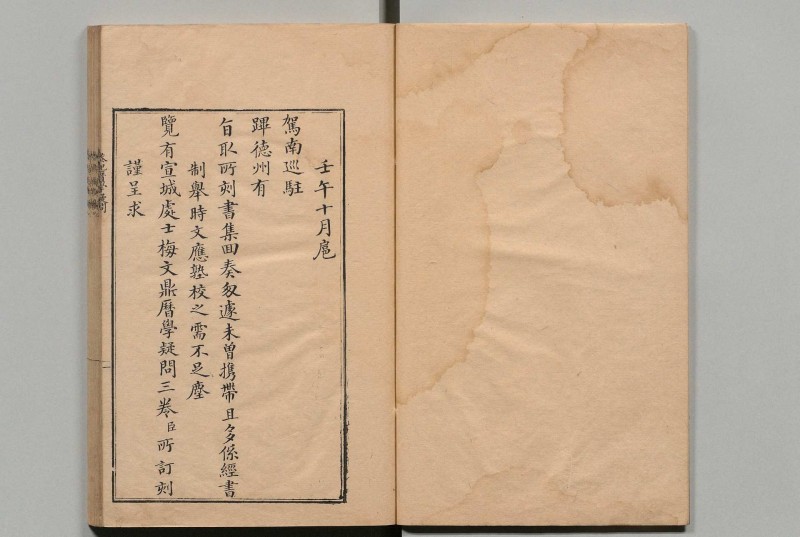 壬午十月扈
駕南巡駐
蹕德州有
旨取所刻書集回奏匆遽未曾携帶且多係經書
制舉時文應塾校之需不足塵
覽有宣城處士梅文鼎曆學疑問三卷臣所訂刻
謹呈求